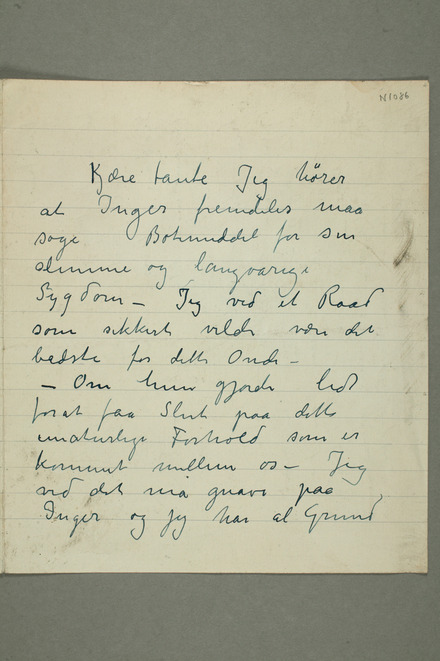 N1086
Kjære tante Jeg hører
at Inger fremdeles maa
søge Botemiddel for sin
slemme og langvarige
Sygdom – Jeg ved et Raad
som sikkert vilde være det
bedste for dette Onde –
– Om hun gjorde lidt
forat faa Slut paa dette
unaturlige Forhold som er
kommet mellem os – Jeg
ved det må gnave paa
Inger og jeg har al Grund